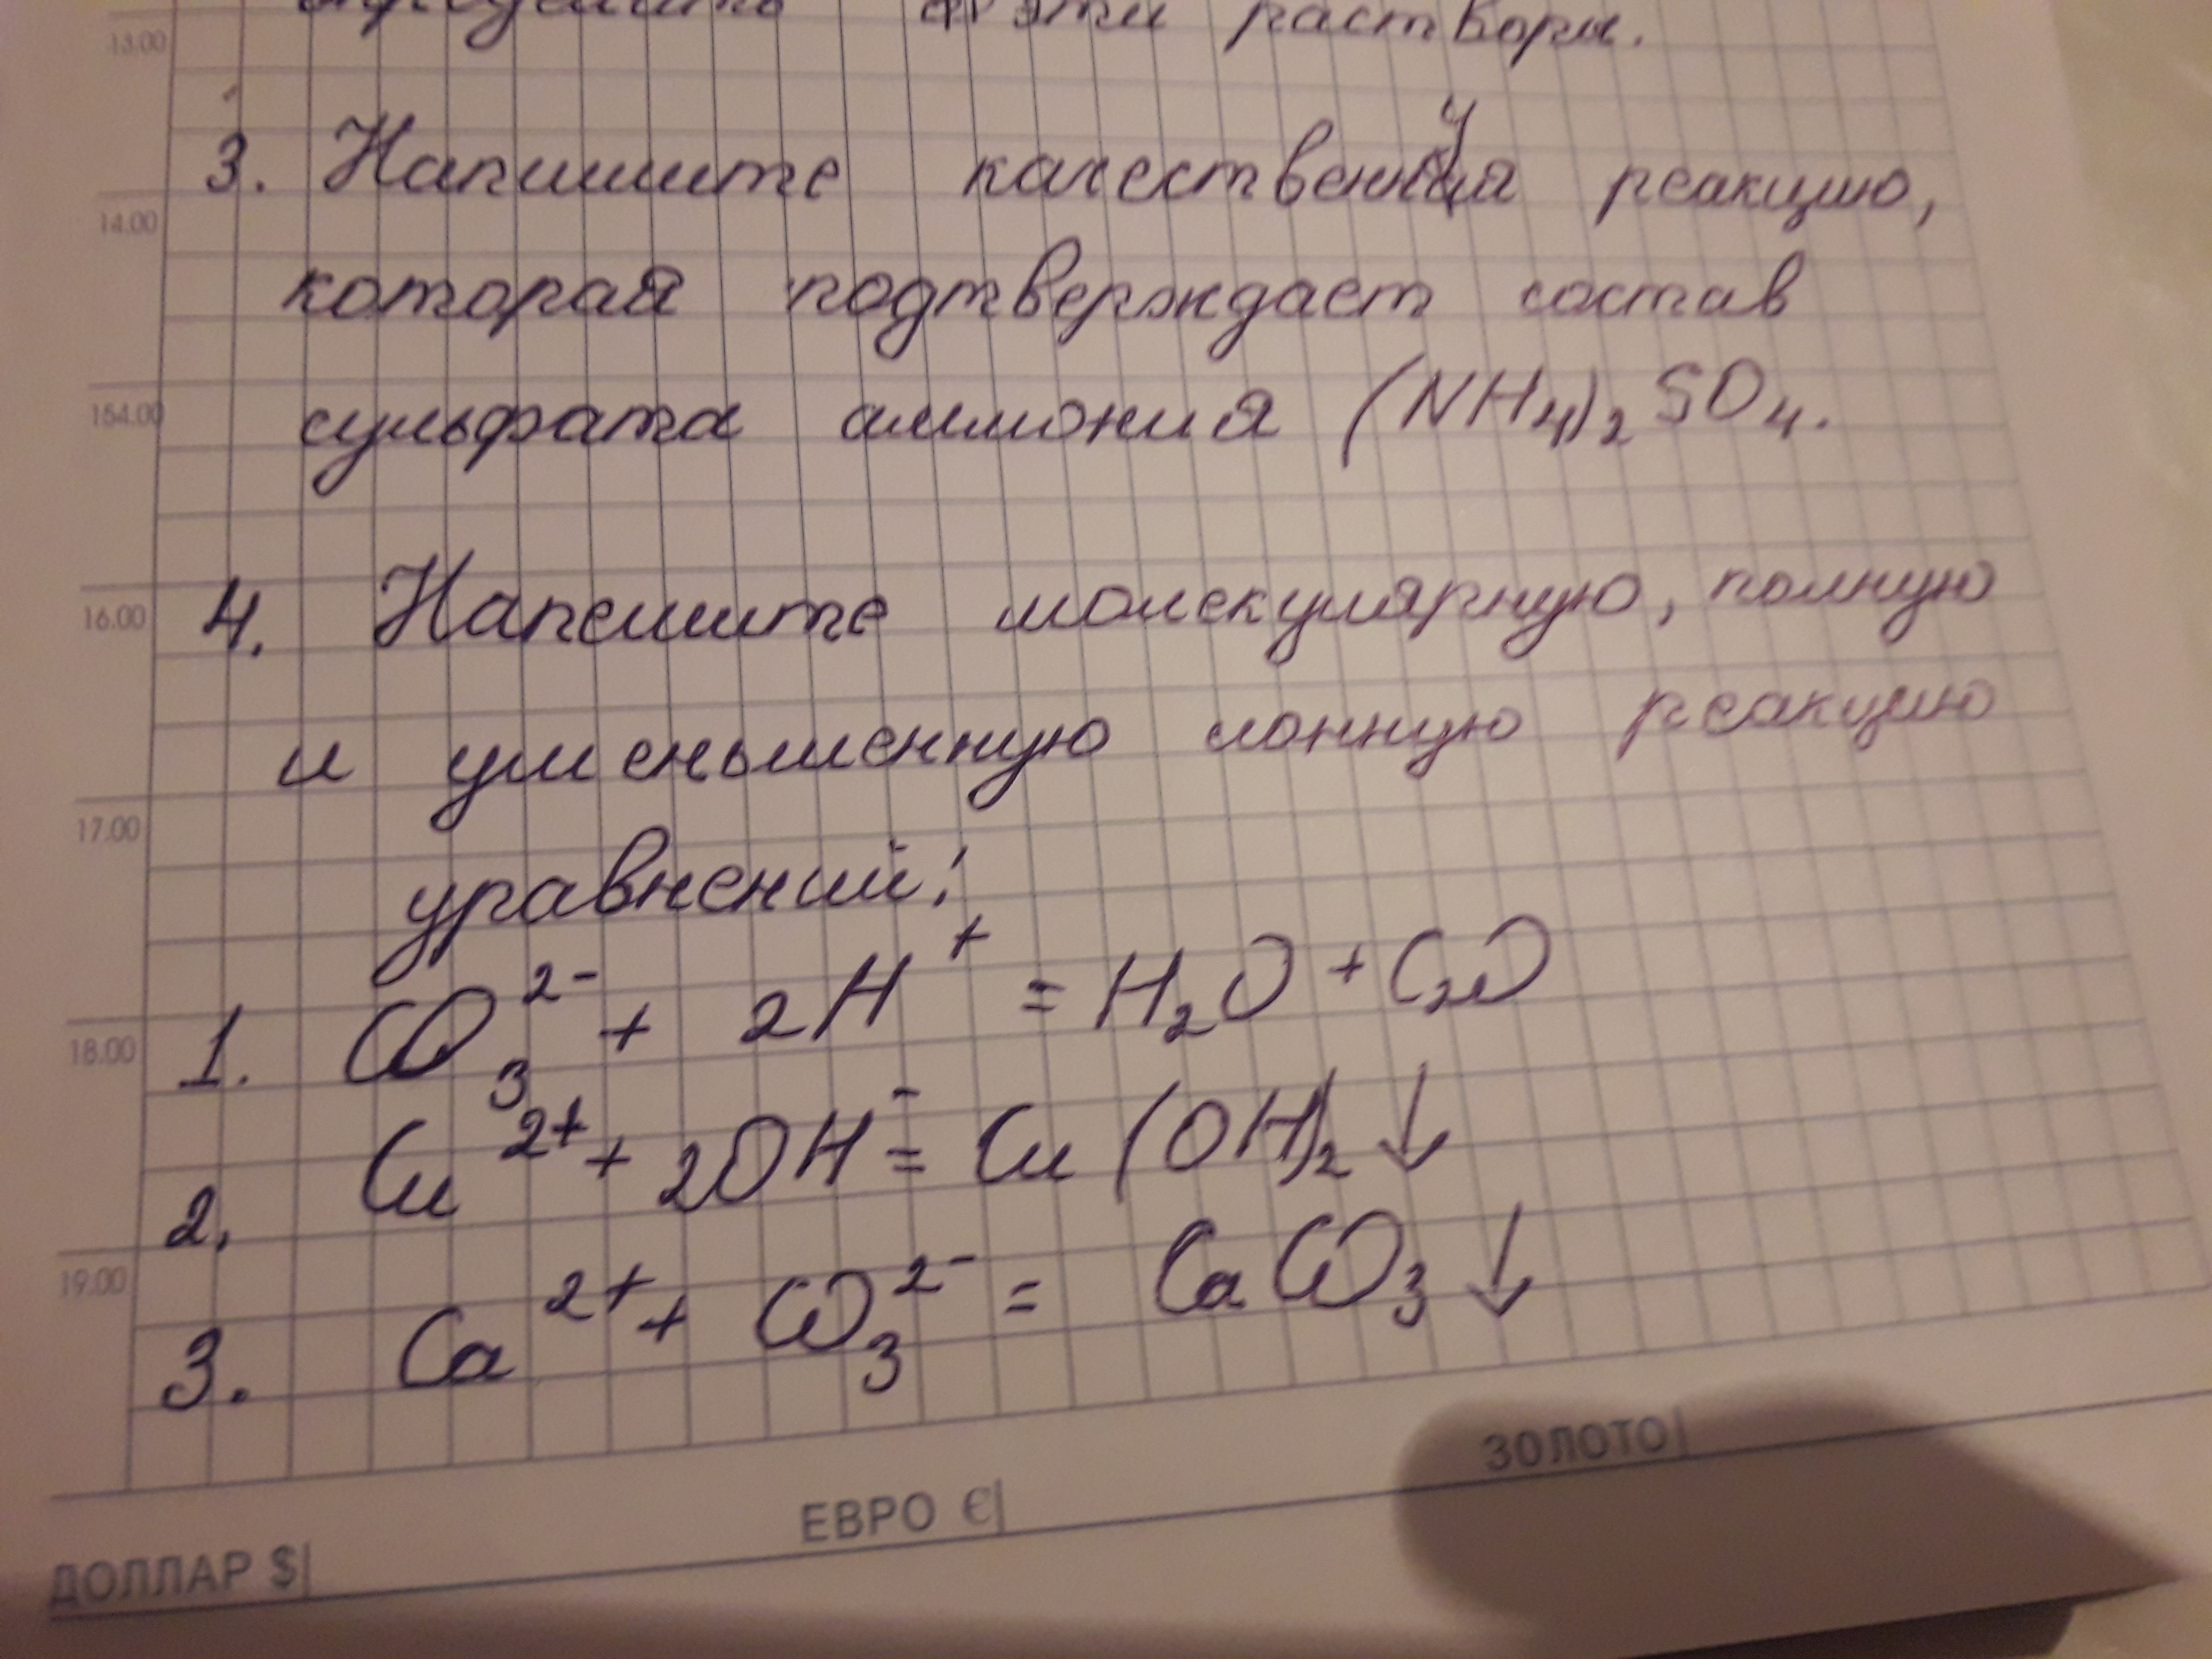 эти растворы.
13.00
3. Напишите качественную реакцию,
14.00
которая подтверждает состав
154.00
сульфата аммония (NH₄)₂SO₄.
16.00
4. Напешите молекулярную, полную
и уменьшенную ионную реакцию
17.00
уравнений:
1. CO₃²⁻ + 2H⁺ = H₂O +
18.00
2. Cu²⁺ + 2OH⁻ = Cu(OH)₂↓
19.00
3. Ca²⁺ + CO₃²⁻ = CaCO₃↓
ДОЛЛАР $ ЕВРО € ЗОЛОТО